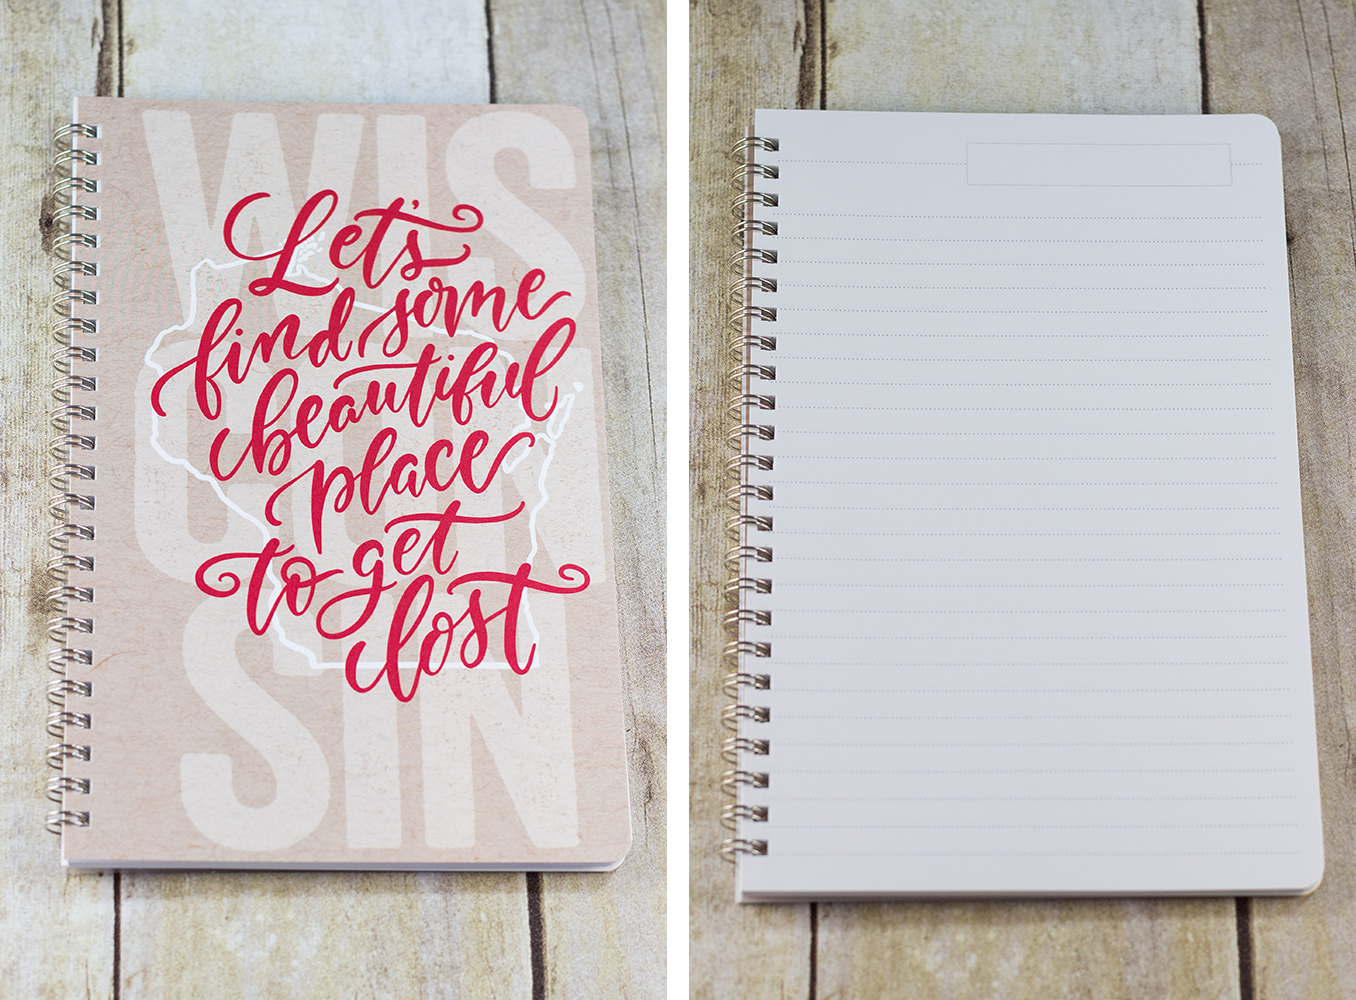 WIS
CON
SIN
Let's
find some
beautiful
place
to get
lost